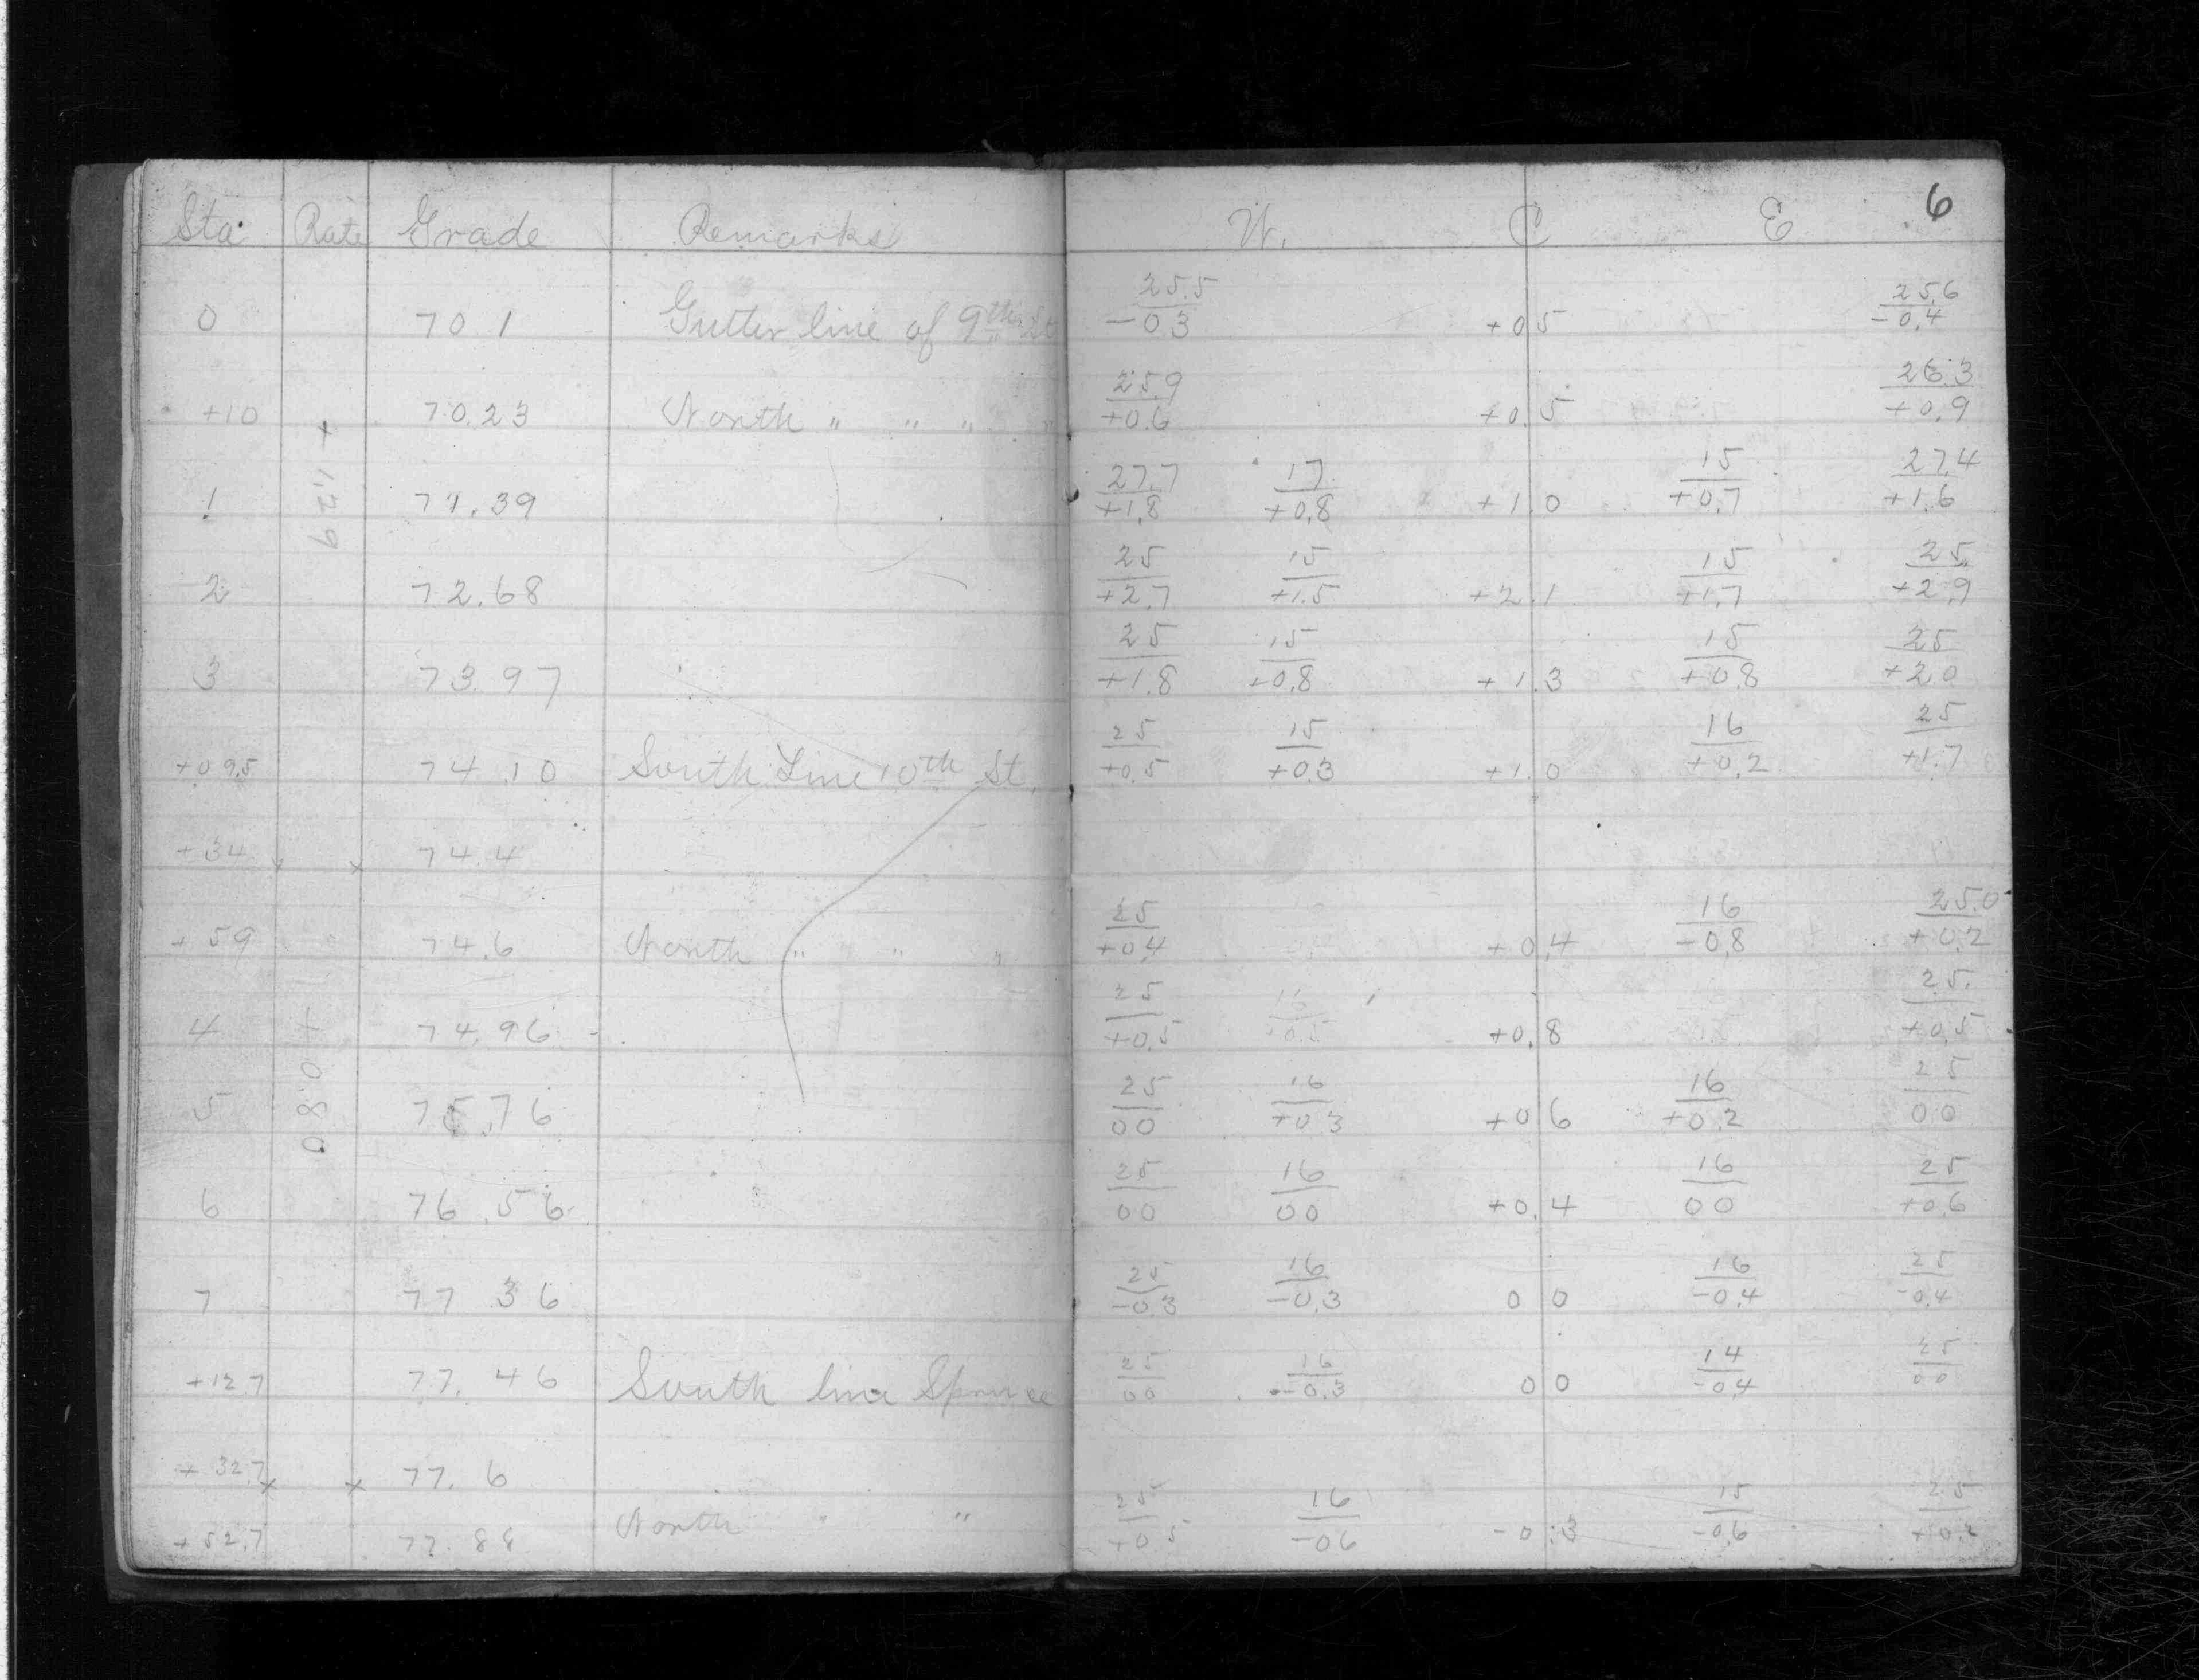 6
Sta. Rate Grade Remarks W. C E
0 70.1 Gutter line of 9th St 25.5/-0.3 +0.5 25.6/-0.4
+10 70.23 North " " " " 25.9/+0.6 +0.5 26.3/+0.9
+1.29
1 71.39 27.7/+1.8 17/+0.8 +1.0 15/+0.7 27.4/+1.6
2 72.68 25/+2.7 15/+1.5 +2.1 15/+1.7 25/+2.9
3 73.97 25/+1.8 15/+0.8 +1.3 15/+0.8 25/+2.0
+09.5 74.10 South Line 10th St. 25/+0.5 15/+0.3 +1.0 16/+0.2 25/+1.7
+34 x x 74.4
+59 74.6 North " " " 25/+0.4 +0.4 16/-0.8 25.0/+0.2
4 74.96 25/+0.5 16/+0.5 +0.8 25/+0.5
+0.80
5 75.76 25/00 16/+0.3 +0.6 16/+0.2 25/00
6 76.56 25/00 16/00 +0.4 16/00 25/+0.6
7 77.36 25/-0.3 16/-0.3 00 16/-0.4 25/-0.4
+12.7 77.46 South line Spruce 25/00 16/-0.3 00 14/-0.4 25/00
+32.7 x x 77.6
+52.7 77.88 North " " 25/+0.5 16/-0.6 -0.3 15/-0.6 25/+0.2